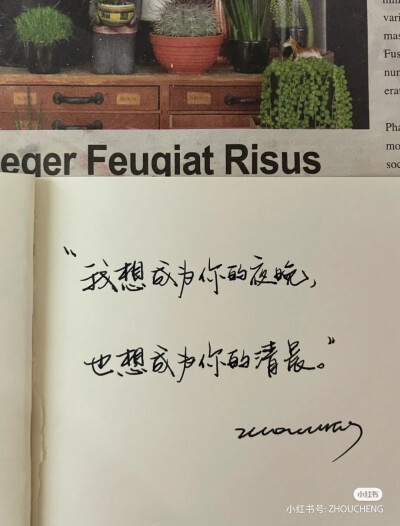 vari
mas
Fus
num
erat
Pha
mo
soc
eger Feugiat Risus
“我想成为你的夜晚,
也想成为你的清晨。”
小红书
小红书号: ZHOUCHENG